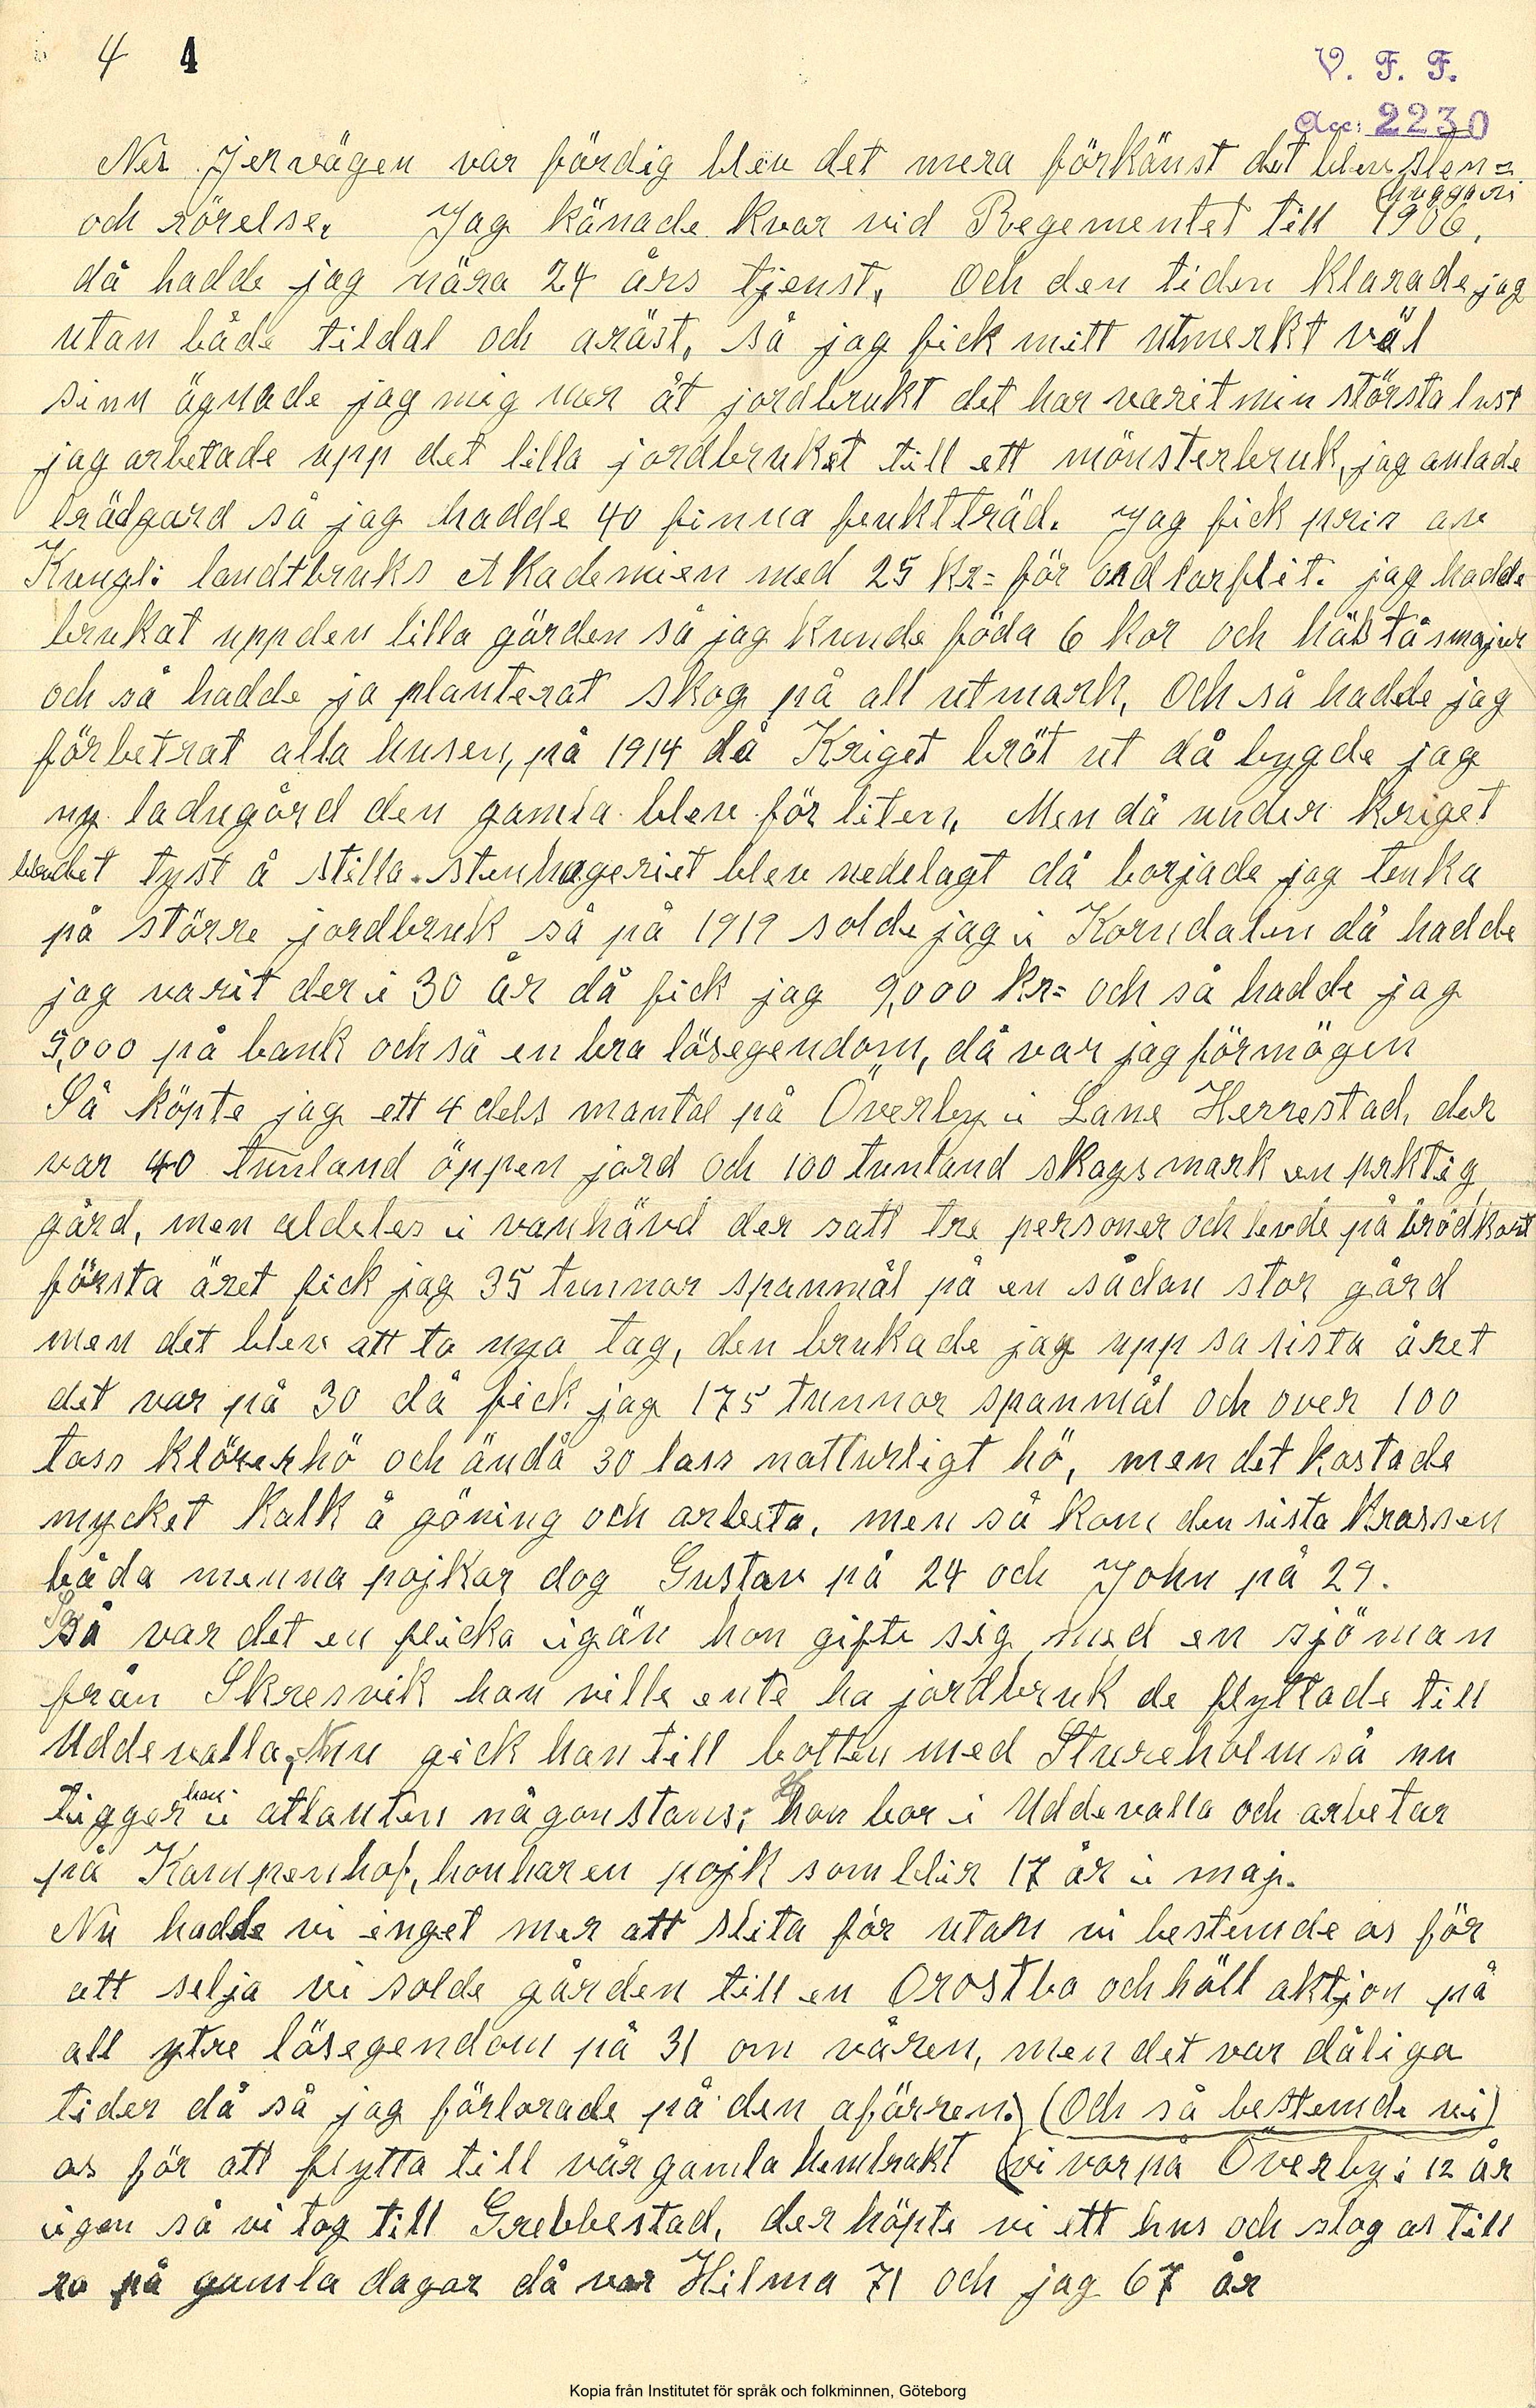 4 4
V. F. F.
Acc: 2230
Ner Jervägen var färdig blev det mera förkänst det blev sten=
huggeri
och rörelse. Jag känade kvar vid Regementet till 1906,
då hadde jag nära 24 års tjenst, och den tiden klarade jag
utan både tildal och aräst, så jag fick mitt utmerkt väl
sinn ägnade jag mig mer åt jordbrukt det har varit min största lust
jag arbetade upp det lilla jordbruket till ett mönsterbruk, jag anlade
trädgard så jag hadde 40 finna fruktträd. Jag fick pris av
Kungl: landtbruks Akademien med 25 kr= för odlarflit. jag hadde
brukat upp den lilla gården så jag kunde föda 6 kor och häst å smajur
och så hadde ja planterat skog på all utmark, Och så hadde jag
förbetrat alla husen, på 1914 då Kriget bröt ut då bygde jag
ny ladugård den gamla blev för liten, Men då under kriget
blev det tyst å stilla. stenhugeriet blev nedelagt då borjade jag tenka
på större jordbruk så på 1919 solde jag i Korndalen då hadde
jag varit der i 30 år då fick jag 9,000 kr= och så hadde jag
9,000 på bank och så en bra lösegendom, då var jag förmögen
Så köpte jag ett 4 dels mantal på Överby i Lane Herrestad, der
var 40 tunland öppen jord och 100 tunland skogsmark en prktig
gård, men aldeles i vanhävd der satt tre personer och levde på brödkort
första året fick jag 35 tunnor spanmål på en sådan stor gård
men det blev att ta nya tag, den brukade jag upp sa sista året
det var på 30 då fick jag 175 tunnor spanmål och over 100
lass klöverhö och ändå 30 lass natturligt hö, men det kostade
mycket kalk å göning och arbeta, men så kom den sista krassen
båda menna pojkar dog Gustav på 24 och John på 29.
Så var det en flicka igän hon gifte sig med en sjöman
från Skresvik han ville ente ha jordbruk de flyttade till
Uddevalla, Nu gick han till botten med Stureholm så nu
ligger han i atlanten någonstans; hon bor i Uddevalla och arbetar
på Kampenhof, hon har en pojk som blir 17 år i maj.
Nu hadde vi inget mer att slita för utan vi bestemde os för
att selja vi solde gården till en Orostbo och höll aktjon på
all ytre lösegendom på 31 om våren, men det var dåliga
tider då så jag förlorade på den afärren. (Och så bestemde vi)
os för att flytta till vår gamla hemtrakt (vi var på Överby i 12 år
igen så vi tog till Grebbestad, der köpte vi ett hus och slog os till
ro på gamla dagar då var Hilma 71 och jag 67 år
Kopia från Institutet för språk och folkminnen, Göteborg